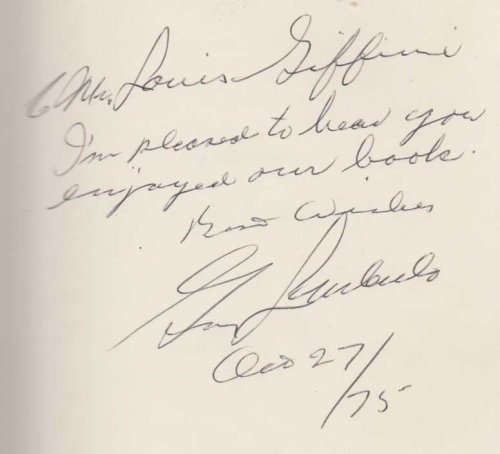 To Mr. Louis Giffuni
I'm pleased to hear you
enjoyed our book.
Best Wishes
Guy Lombardo
Oct 27/75